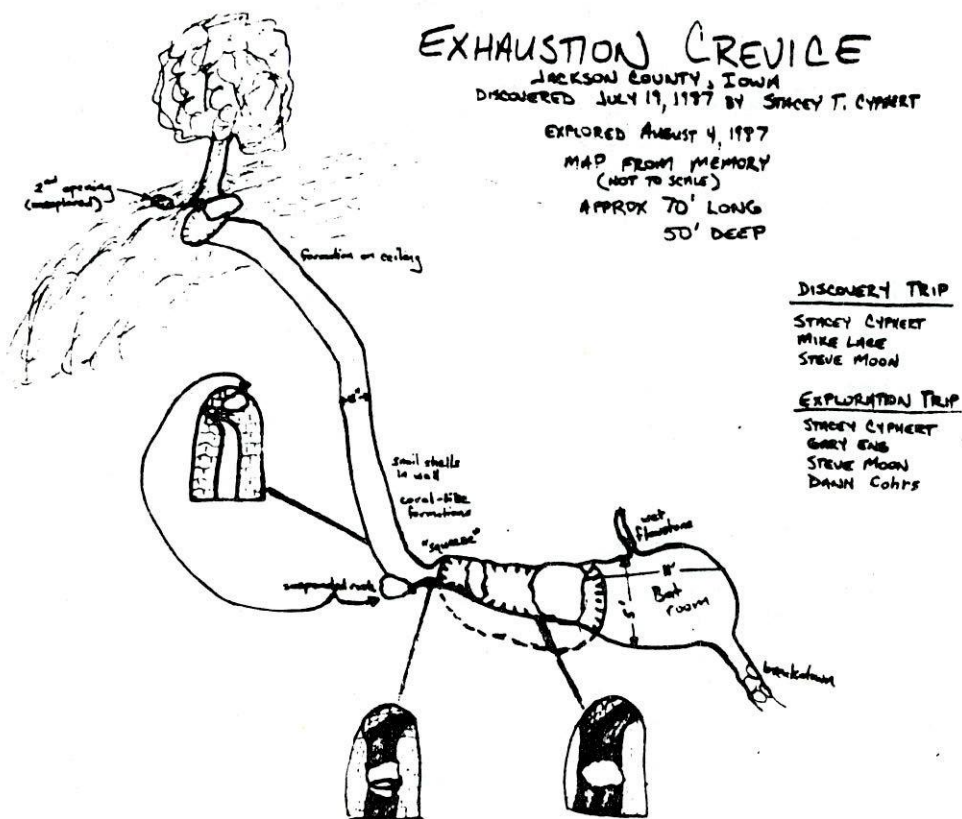 EXHAUSTION CREVICE
JACKSON COUNTY, IOWA
DISCOVERED JULY 19, 1987 BY STACEY T. CYPHERT
EXPLORED AUGUST 4, 1987
MAP FROM MEMORY
(NOT TO SCALE)
APPROX 70' LONG
50' DEEP
DISCOVERY TRIP
STACEY CYPHERT
MIKE LACE
STEVE MOON
EXPLORATION TRIP
STACEY CYPHERT
GARY ENG
STEVE MOON
DANN COhrs
2nd opening
(unexplored)
formation on ceiling
18"
snail shells
in wall
coral-like
formations
"squeeze"
suspended rock
wet
flowstone
Bat
room
breakdown